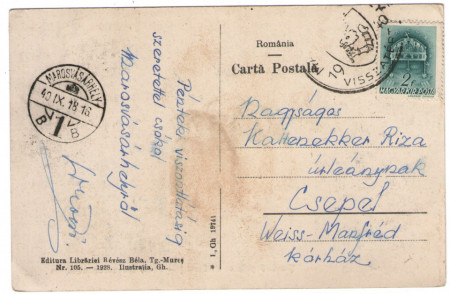 România
Carta Postală
MAROSVÁSÁRHELY
40 IX. 18-16
B 1 B
19
VISSZA
2f
MAGYAR KIR. POSTA
Péntek viszontlátásig
szeretettel csókol
Marosvásárhelyről
Nagyságos
Kaltenekker Riza
úrleánynak
Csepel
Weiss-Manfréd
kórház
* 1, Gh 19741
Editura Librăriei Révész Béla, Tg.-Mureş
Nr. 105. — 1928. Ilustraţia, Gh.